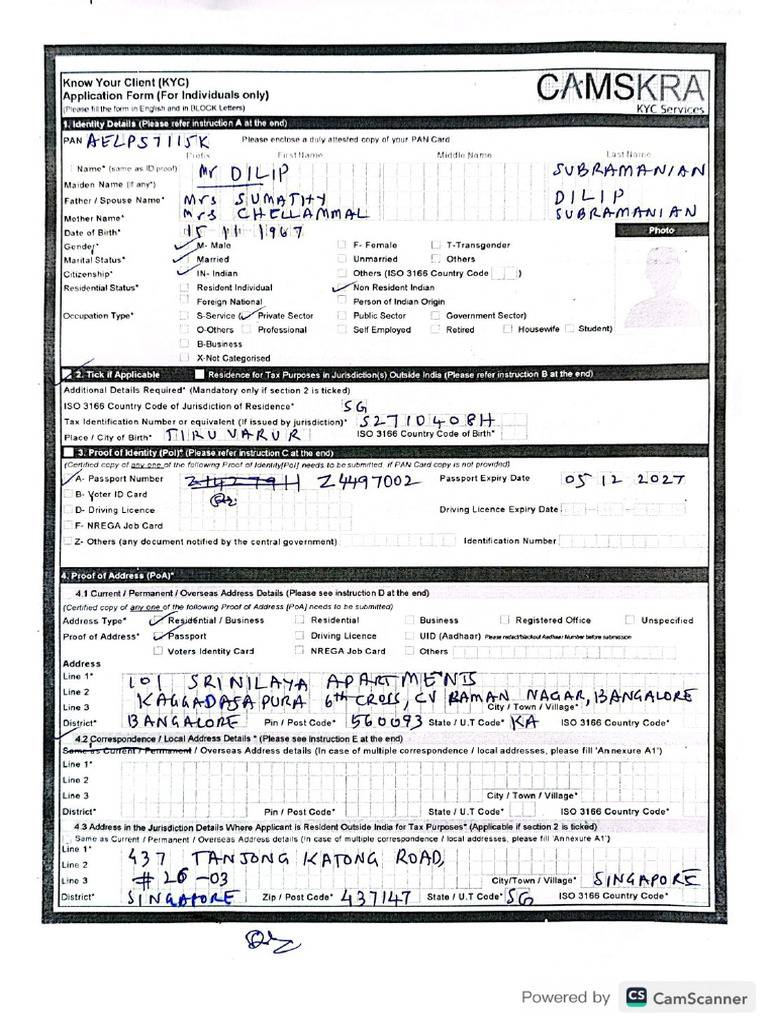 Know Your Client (KYC)
Application Form (For Individuals only)
(Please fill the form in English and in BLOCK Letters)
CAMSKRA
KYC Services
1. Identity Details (Please refer instruction A at the end)
PAN AELPS7115K Please enclose a duly attested copy of your PAN Card
Prefix First Name Middle Name Last Name
Name* (same as ID proof) Mr DILIP SUBRAMANIAN
Maiden Name (if any*)
Father / Spouse Name* Mrs SUMATHY DILIP
Mother Name* Mrs CHELLAMMAL SUBRAMANIAN
Date of Birth* 15 11 1967 Photo
Gender* M- Male F- Female T-Transgender
Marital Status* Married Unmarried Others
Citizenship* IN- Indian Others (ISO 3166 Country Code )
Residential Status* Resident Individual Non Resident Indian
Foreign National Person of Indian Origin
Occupation Type* S-Service ( Private Sector Public Sector Government Sector)
O-Others Professional Self Employed Retired Housewife Student)
B-Business
X-Not Categorised
2. Tick if Applicable Residence for Tax Purposes in Jurisdiction(s) Outside India (Please refer instruction B at the end)
Additional Details Required* (Mandatory only if section 2 is ticked)
ISO 3166 Country Code of Jurisdiction of Residence* SG
Tax Identification Number or equivalent (If issued by jurisdiction)* S2710408H
Place / City of Birth* TIRUVARUR ISO 3166 Country Code of Birth*
3. Proof of Identity (PoI)* (Please refer instruction C at the end)
(Certified copy of any one of the following Proof of Identity[PoI] needs to be submitted, if PAN Card copy is not provided)
A- Passport Number Z4497002 Passport Expiry Date 05 12 2027
B- Voter ID Card
D- Driving Licence Driving Licence Expiry Date
F- NREGA Job Card
Z- Others (any document notified by the central government) Identification Number
4. Proof of Address (PoA)*
4.1 Current / Permanent / Overseas Address Details (Please see instruction D at the end)
(Certified copy of any one of the following Proof of Address [PoA] needs to be submitted)
Address Type* Residential / Business Residential Business Registered Office Unspecified
Proof of Address* Passport Driving Licence UID (Aadhaar) Please redact/blackout Aadhaar Number before submission
Voters Identity Card NREGA Job Card Others
Address
Line 1* 101 SRINILAYA APARTMENTS
Line 2 KAGGADASAPURA 6th CROSS, CV RAMAN NAGAR, BANGALORE
Line 3 City / Town / Village*
District* BANGALORE Pin / Post Code* 560093 State / U.T Code* KA ISO 3166 Country Code*
4.2 Correspondence / Local Address Details * (Please see instruction E at the end)
Same as Current / Permanent / Overseas Address details (In case of multiple correspondence / local addresses, please fill 'Annexure A1')
Line 1*
Line 2
Line 3 City / Town / Village*
District* Pin / Post Code* State / U.T Code* ISO 3166 Country Code*
4.3 Address in the Jurisdiction Details Where Applicant is Resident Outside India for Tax Purposes* (Applicable if section 2 is ticked)
Same as Current / Permanent / Overseas Address details (In case of multiple correspondence / local addresses, please fill 'Annexure A1')
Line 1* 437 TANJONG KATONG ROAD,
Line 2 # 26 -03
Line 3 City/Town / Village* SINGAPORE
District* SINGAPORE Zip / Post Code* 437147 State / U.T Code* SG ISO 3166 Country Code*
Powered by CS CamScanner